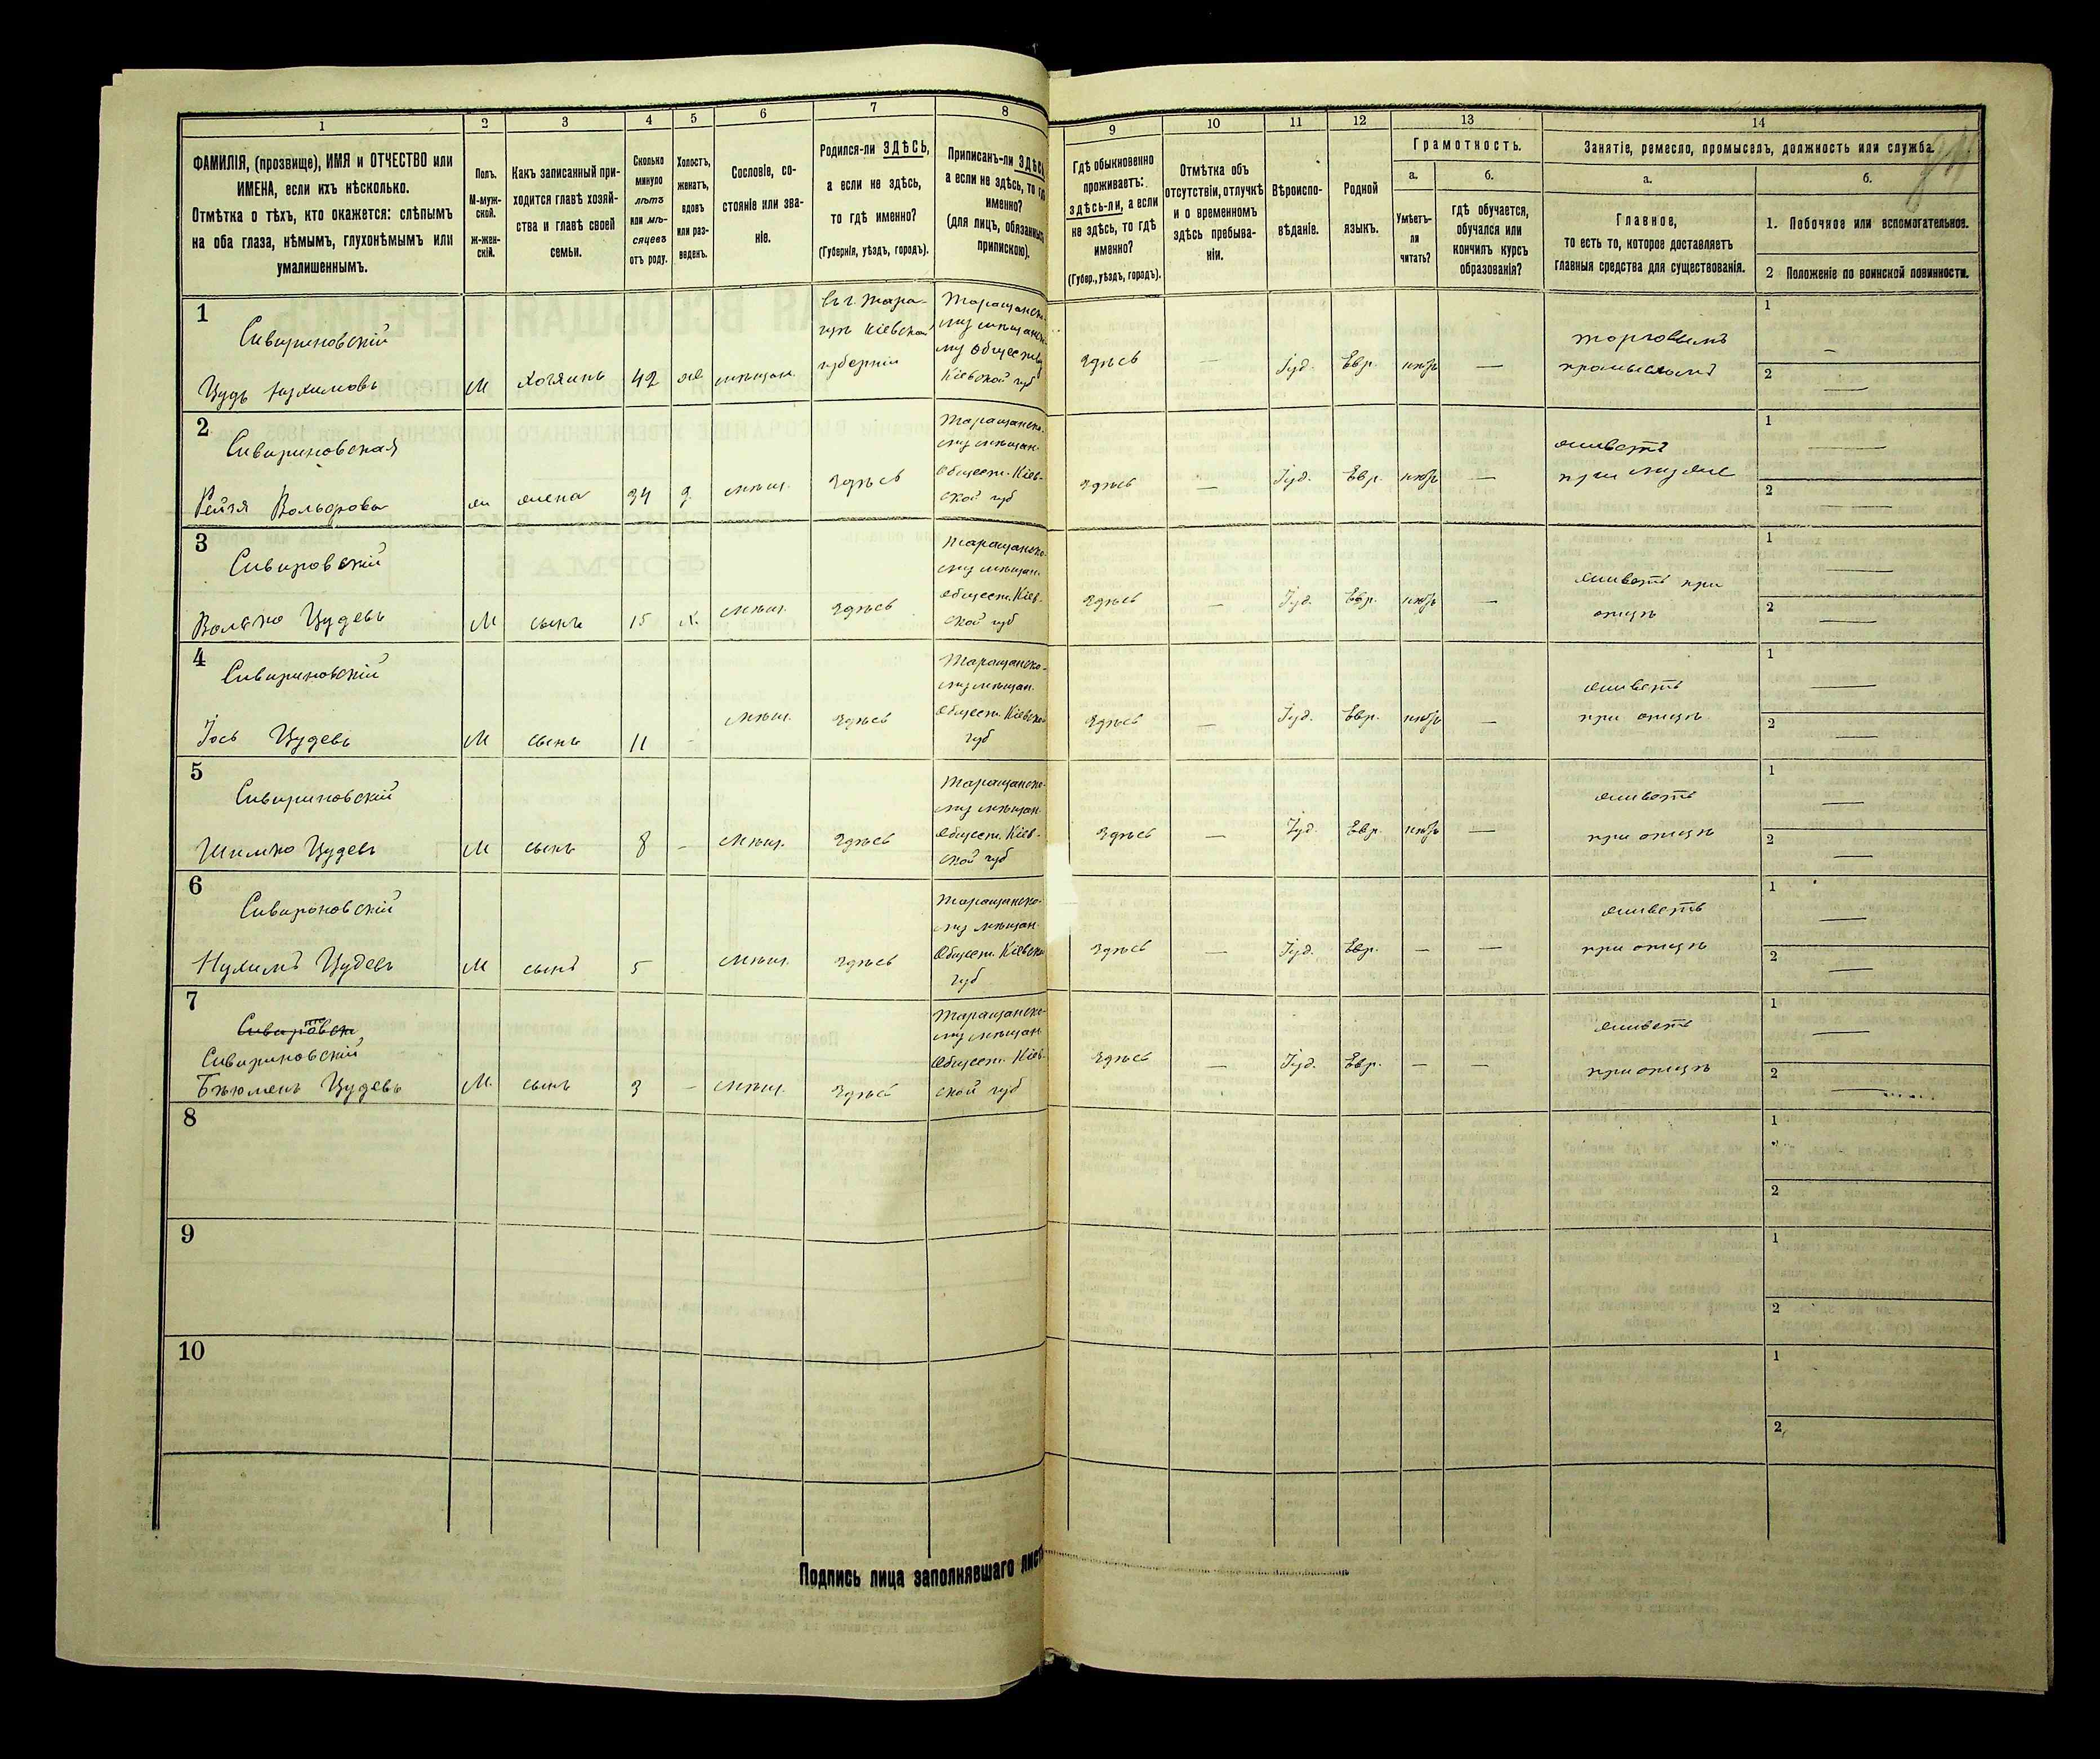 1
2
3
4
5
6
7
8
9
10
11
12
13
14
ФАМИЛІЯ, (прозвище), ИМЯ и ОТЧЕСТВО или
ИМЕНА, если ихъ нѣсколько.
Отмѣтка о тѣхъ, кто окажется: слѣпымъ
на оба глаза, нѣмымъ, глухонѣмымъ или
умалишеннымъ.
Полъ.
М-муж-
ской.
Ж-жен-
скій.
Какъ записанный при-
ходится главѣ хозяй-
ства и главѣ своей
семьи.
Сколько
минуло
лѣтъ
или мѣ-
сяцевъ
отъ роду.
Холостъ,
женатъ,
вдовъ
или раз-
веденъ.
Сословіе, со-
стояніе или зва-
ніе.
Родился-ли ЗДѢСЬ,
а если не здѣсь,
то гдѣ именно?
(Губернія, уѣздъ, городъ).
Приписанъ-ли ЗДѢСЬ
а если не здѣсь, то гдѣ
именно?
(для лицъ, обязанныхъ
припискою).
Гдѣ обыкновенно
проживаетъ:
здѣсь-ли, а если
не здѣсь, то гдѣ
именно?
(Губер., уѣздъ, городъ).
Отмѣтка объ
отсутствіи, отлучкѣ
и о временномъ
здѣсь пребыва-
ніи.
Вѣроиспо-
вѣданіе.
Родной
языкъ.
Грамотность.
а.
б.
Умѣетъ-
ли
читать?
гдѣ обучается,
обучался или
кончилъ курсъ
образованія?
Занятіе, ремесло, промыселъ, должность или служба.
а.
б.
Главное,
то есть то, которое доставляетъ
главныя средства для существованія.
1. Побочное или вспомогательное.
2 Положеніе по воинской повинности.
1
Сивириновскій
Цудь Нухимовъ
М
хозяинъ
42
же.
мѣщан.
Въ г. Тара-
щѣ Кіевской
губерніи
Таращанско-
му мѣщанско-
му Обществу
Кіевской губ
здѣсь
—
Іуд.
Евр.
—
торговымъ
промысломъ
1
—
2
—
2
Сивириновская
Рейзя Вольфова
ж
жена
34
З.
мѣщ.
Здѣсь
Таращанско-
му мѣщан.
Обществ. Кіев-
ской губ
Здѣсь
—
Іуд.
Евр.
—
живетъ
при мужѣ
1
—
2
—
3
Сивировскій
Волько Цудевъ
М
сынъ
15
х.
мѣщ.
Здѣсь
Таращанско-
му мѣщан.
Обществ. Кіев-
ской губ
Здѣсь
—
Іуд.
Евр.
—
живетъ при
отцѣ
1
—
2
—
4
Сивириновскій
Іось Цудевъ
М
сынъ
11
-
мѣщ.
Здѣсь
Таращанско-
му мѣщан.
Обществ. Кіевской
губ
Здѣсь
—
Іуд.
Евр.
—
живетъ
при отцѣ
1
—
2
—
5
Сивириновскій
Шимко Цудевъ
М
сынъ
8
-
мѣщ.
Здѣсь
Таращанско-
му мѣщан.
Обществ. Кіев-
ской губ
Здѣсь
—
Іуд.
Евр.
—
живетъ
при отцѣ
1
—
2
—
6
Сивириновскій
Нухимъ Цудевъ
М
сынъ
5
мѣщ.
Здѣсь
Таращанско-
му мѣщан.
Обществ. Кіевской
губ
Здѣсь
—
Іуд.
Евр.
—
—
живетъ
при отцѣ
1
—
2
—
7
Сивириновскій
Бѣюменъ Цудевъ
М.
сынъ
3
—
мѣщ.
Здѣсь
Таращанско-
му мѣщан.
Обществ. Кіев-
ской губ
Здѣсь
—
Іуд.
Евр.
—
—
живетъ
при отцѣ
1
—
2
—
8
1
2
9
1
2
10
1
2
Подпись лица заполнявшаго листъ